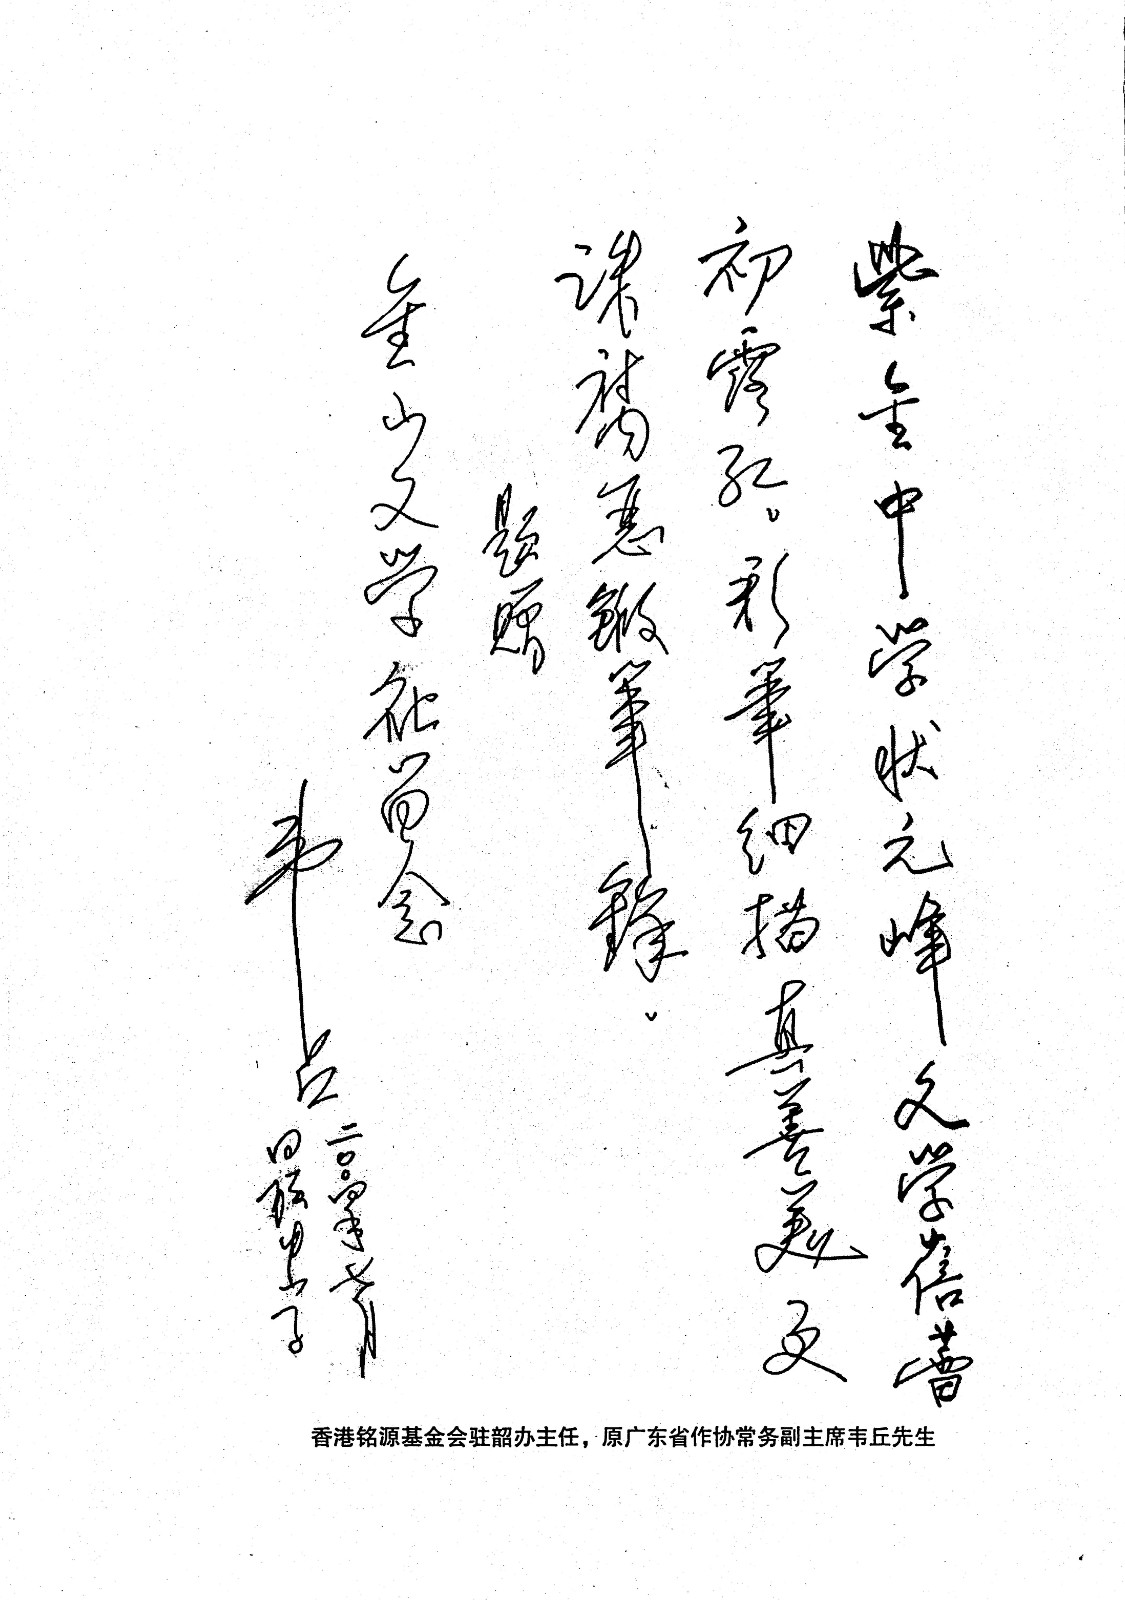 紫金中学状元峰文学蓓蕾
初露红。彩笔细描真善美更
诛腐恶锻笔锋。
题赠
金山文学社留念
韦丘
二〇〇四年七月